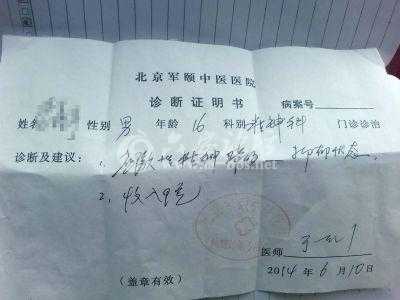 北京军颐中医医院
诊断证明书
病案号
姓名 性别 男 年龄 16 科别 精神科 门诊诊治
诊断及建议： 1、 精神障碍 抑郁状态
2、收入
医师
2014年6月10日
（盖章有效）